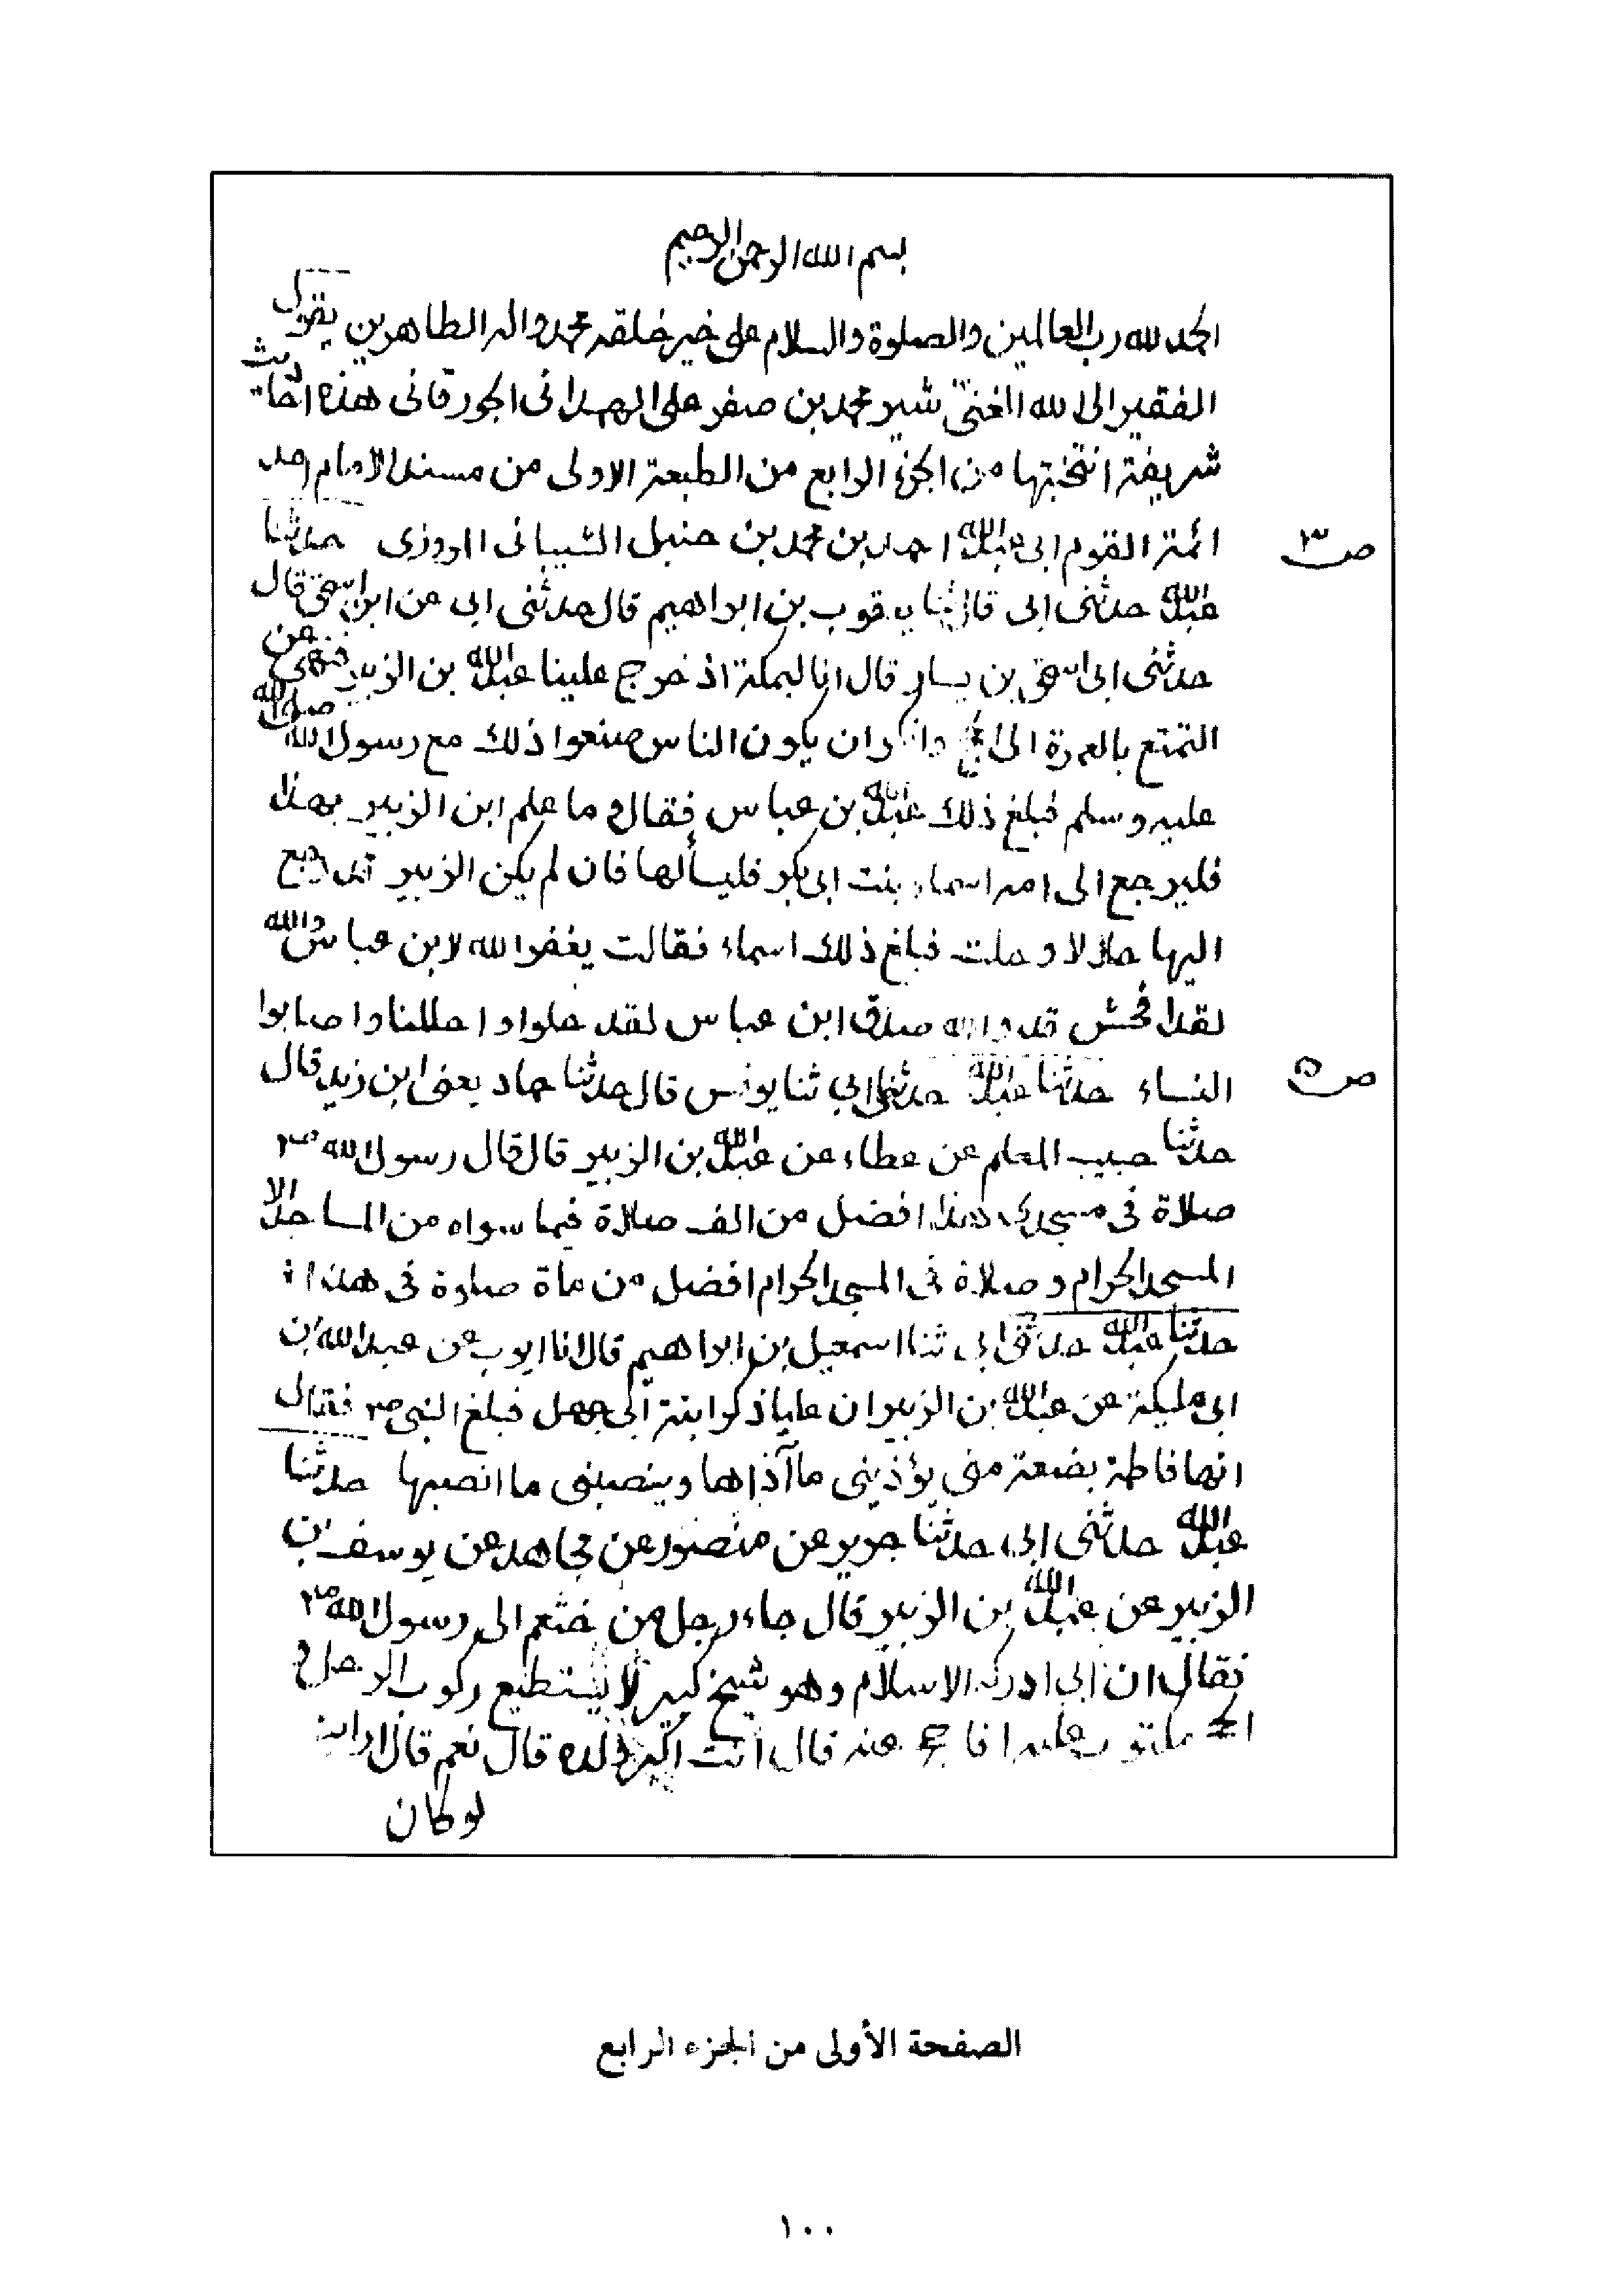 بسم الله الرحمن الرحيم
الحمد لله رب العالمين والصلوة والسلام على خير خلقه محمد واله الطاهرين يقول
الفقير الى الله الغنى شير محمد بن صفر على الهمدانى الجورقانى هذه احاديث
شريفة انتخبتها من الجزء الرابع من الطبعة الاولى من مسند الامام احد
ائمة القوم ابى عبدالله احمد بن محمد بن حنبل الشيبانى المروزى حدثنا
ص ٣
عبدالله حدثنى ابى قال ثنا يعقوب بن ابراهيم قال حدثنى ابى عن ابن اسحق قال
حدثنى ابى اسحق بن يسار قال انا لبمكة اذ خرج علينا عبدالله بن الزبير فنهى عن
التمتع بالعمرة الى الحج وانكر ان يكون الناس صنعوا ذلك مع رسول الله صلى الله
عليه وسلم فبلغ ذلك عبدالله بن عباس فقال و ما علم ابن الزبير بهذا
فليرجع الى امه اسماء بنت ابى بكر فليسألها فان لم يكن الزبير قد رجع
اليها حلالا وحلت فبلغ ذلك اسماء فقالت يغفر الله لابن عباس والله
لقد افحش قد والله صدق ابن عباس لقد حلوا واحللنا واصابوا
النساء حدثنا عبدالله حدثنى ابى ثنا يونس قال حدثنا حماد يعنى ابن زيد قال
ص ٥
حدثنا حبيب المعلم عن عطاء عن عبدالله بن الزبير قال قال رسول الله ص
صلاة فى مسجدى هذا افضل من الف صلاة فيما سواه من المساجد الا
المسجد الحرام وصلاة فى المسجد الحرام افضل من مأة صلوة فى هذا
حدثنا عبدالله حدثنى ابى ثنا اسمعيل بن ابراهيم قال انا ايوب عن عبدالله بن
ابى مليكة عن عبدالله بن الزبير ان عليا ذكر ابنة ابى جهل فبلغ النبى ص فقال
انها فاطمة بضعة منى يؤذينى ما آذاها وينصبنى ما انصبها حدثنا
عبدالله حدثنى ابى حدثنا جرير عن منصور عن مجاهد عن يوسف بن
الزبير عن عبدالله بن الزبير قال جاء رجل من خثعم الى رسول الله ص
فقال ان ابى ادركه الاسلام وهو شيخ كبير لا يستطيع ركوب الرحل و
الحج مكتوب عليه افاحج عنه قال انت اكبر ولده قال نعم قال ارايت
لو كان
الصفحة الأولى من الجزء الرابع
١٠٠